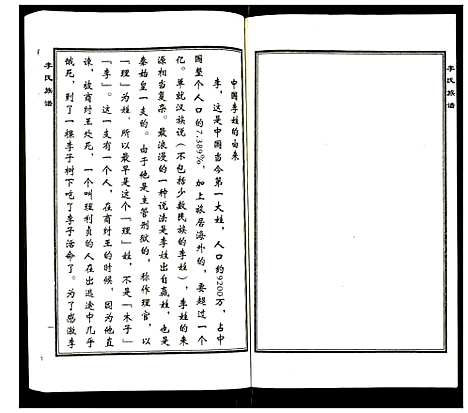 李氏族谱
中国李姓的由来
李，这是中国当今第一大姓，人口约9200万，占中
国整个人口的7.389%，加上旅居海外的，要超过一个
亿。单就汉族说（不包括少数民族的李姓），李姓的来
源相当复杂。最浪漫的一种说法是李姓出自嬴姓，也是
秦始皇一支的。由于他是主管刑狱的，称作理官，以
「理」为姓，所以最早是这个「理」姓，不是「木子」
「李」。这一支有一个人，在商纣王的时候，因为他直
谏，被商纣王处死，一个叫理利贞的人在出逃途中几乎
饿死，到了一棵李子树下吃了李子活命了。为了感激李
李氏族谱
一